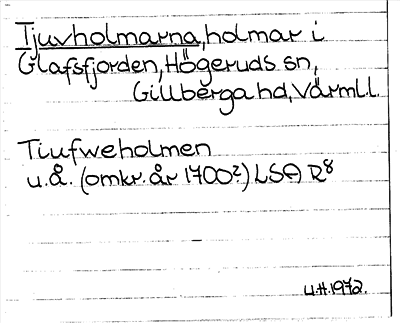 Tjuvholmarna, holmar i
Glafsfjorden, Högeruds sn,
Gillberga hd, Värml.l.
Tiufweholmen
u.å. (omkr. år 1700?) LSA R8
U.H. 1972.